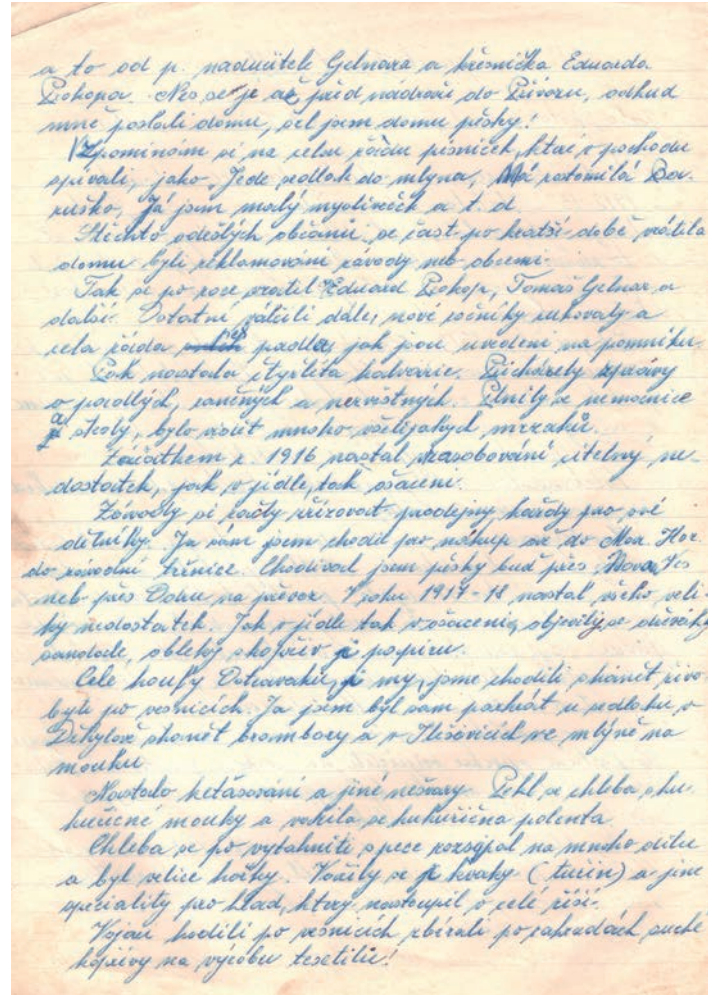 a to od p. nadučitele Gelnara a křesníčka Eduarda
Prokopa. Nes se je až před nádraží do Přívozu, odkud
mne poslali domu, šel jsem domu pěšky!
Vzpomínám si na celou řádu písniček, které v pochodu
zpívali, jako, Jede sedlak do mlyna, Má roztomilá Ba-
ruško, Já jsem malý mysliveček a t. d.
Stěchto odešlých občanů, se část po kratší době vrátila
domu byli reklamováni závody neb obcemi.
Tak se po roce vratil Eduard Prokop, Tomaš Gelnar a
další. Ostatní válčili dále, nové ročníky rukovaly a
cela řáda padla, jak jsou uvedeni na pomníku.
Pak nastala čtyřleta kalvarie. Přicházely zprávy
o padlých, raněných a nezvěstných. Plnily se nemocnice
a školy, bylo vidět mnoho všelijakych mrzaků.
Začátkem r. 1916 nastal v zasobování citelný, ne-
dostatek, jak v jídle, tak ošaceni.
Závody si začly zřizovat prodejny, každy pro své
dělníky. Ja sám jsem chodil pro nákup až do Mar. Hor.
do závodní tržnice. Chodíval jsem pěšky buď přes Nova Ves
neb přes Odru na převoz. V roku 1917-18 nastal všeho veli-
ky nedostatek. Jak v jídle tak v ošaceni, objevily se dřevěné
sandale, obleky s kopřiv i papiru.
Cele houfy Ostravaků, i my, jsme chodili shánět živo-
byti po vesnicích. Ja jsem byl sam párkrát u sedlaku v
Děhylově shanět brambory a v Jilešovicích ve mlýně na
mouku.
Nastalo ketăsování a jiné nešvary. Pekl se chleba s ku-
kuřičné mouky a vařila se kukuřična polenta.
Chleba se po vytahnutí s pece rozsypal na mnoho dílu
a byl velice hořky. Vozily se kvaky (tuřin) a jine
speciality pro hlad, ktery nastoupil v celé říši.
Vojaci hodili po vesnicích zbírali po zahradách suché
kopřivy na výrobu textilii!